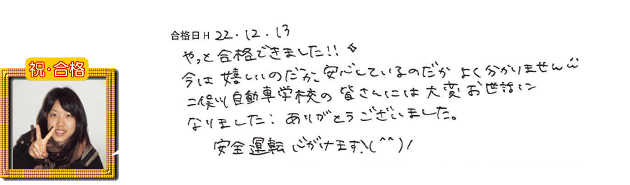 合格日 H 22.12.13
祝・合格
やっと合格できました!!
今は嬉しいのだか、安心しているのだか よく分かりません
二俣川自動車学校の皆さんには大変お世話に
なりました: ありがとうございました。
安全運転心がけます\(^^)/